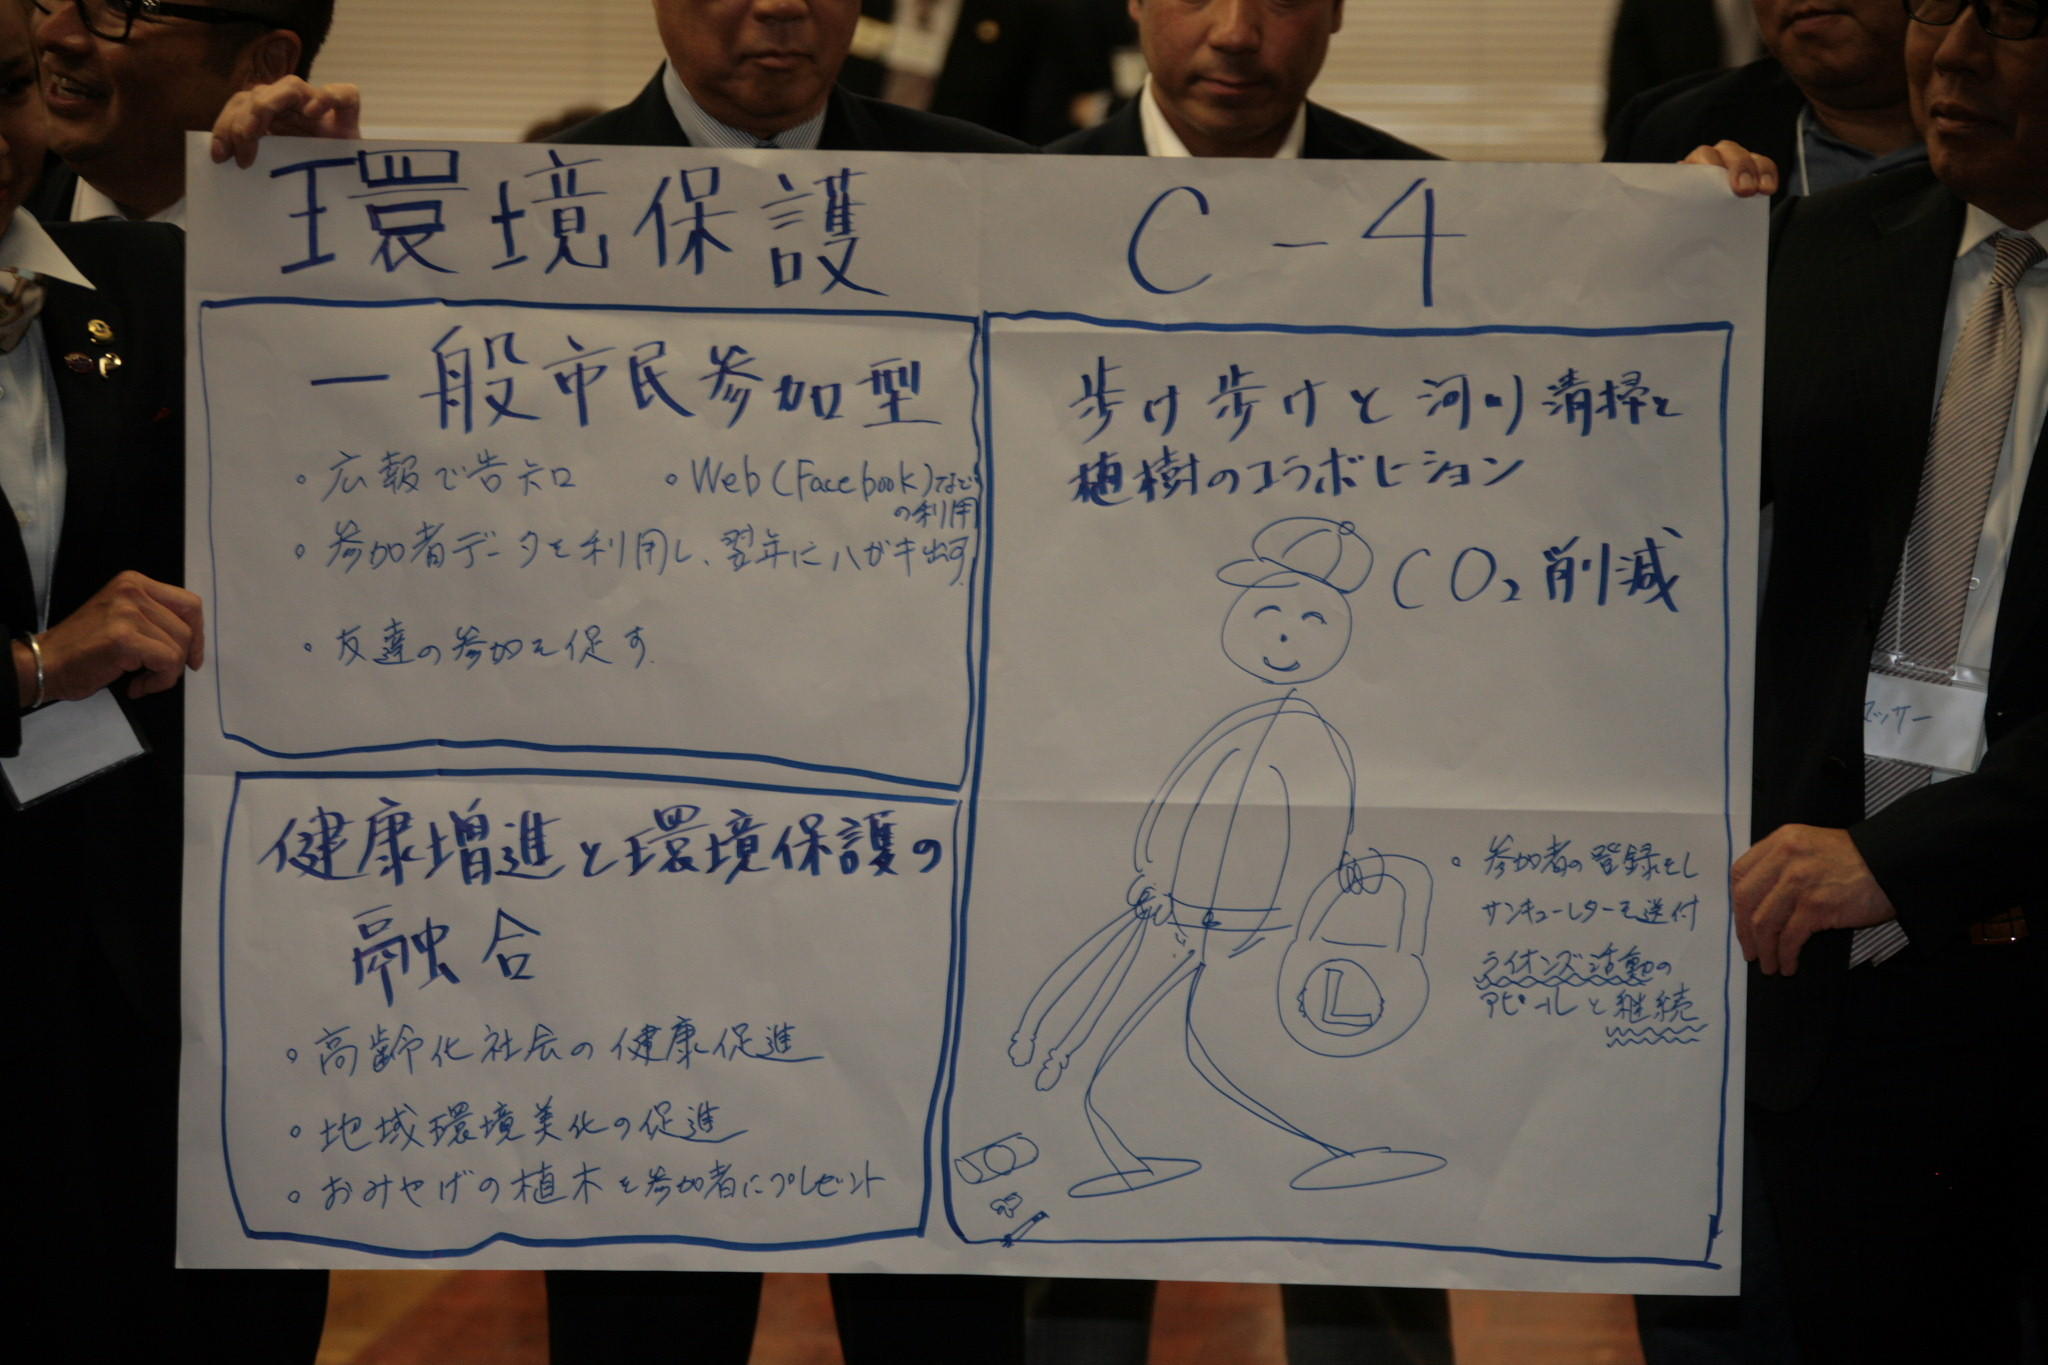 環境保護
C-4
一般市民参加型
・広報で告知
・Web(Facebook)など
の利用
・参加者データを利用し、翌年にハガキ出す
・友達の参加を促す.
健康増進と環境保護の
融合
・高齢化社会の健康促進
・地域環境美化の促進
・おみやげの植木を参加者にプレゼント
歩け歩けと河川清掃と
植樹のコラボレーション
CO₂削減
・参加者の登録をし
サンキューレターを送付
ライオンズ活動の
アピールと継続
L
マッサー